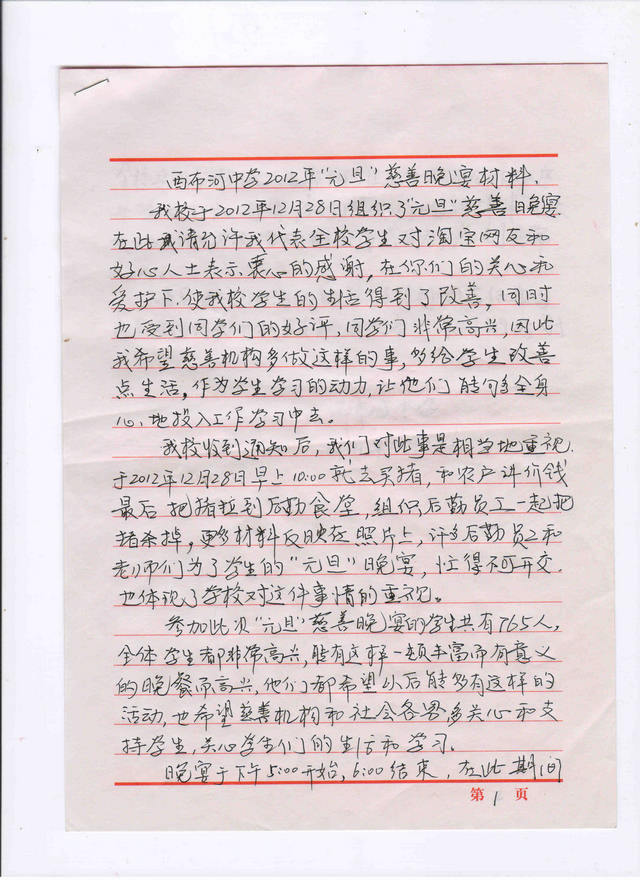 西布河中学2012年"元旦"慈善晚宴材料.
我校于2012年12月28日组织了"元旦"慈善晚宴.
在此请允许我代表全校学生对淘宝网友和
好心人士表示衷心的感谢,在你们的关心和
爱护下.使我校学生的生活得到了改善,同时
也受到同学们的好评,同学们非常高兴,因此
我希望慈善机构多做这样的事,多给学生改善
点生活,作为学生学习的动力,让他们能够全身
心地投入工作学习中去。
我校收到通知后,我们对此事是相当地重视.
于2012年12月28日早上10:00就去买猪,和农户讲价钱
最后把猪拉到后勤食堂,组织后勤员工一起把
猪杀掉,更多材料反映在照片上,许多后勤员工和
老师们为了学生的"元旦"晚宴,忙得不可开交.
也体现了学校对这件事情的重视。
参加此次"元旦"慈善晚宴的学生共有765人,
全体学生都非常高兴,能有这样一顿丰富而有意义
的晚餐而高兴,他们都希望以后能多有这样的
活动,也希望慈善机构和社会各界多关心和支
持学生,关心学生们的生活和学习.
晚宴于下午5:00开始,6:00结束,在此期间
第1页